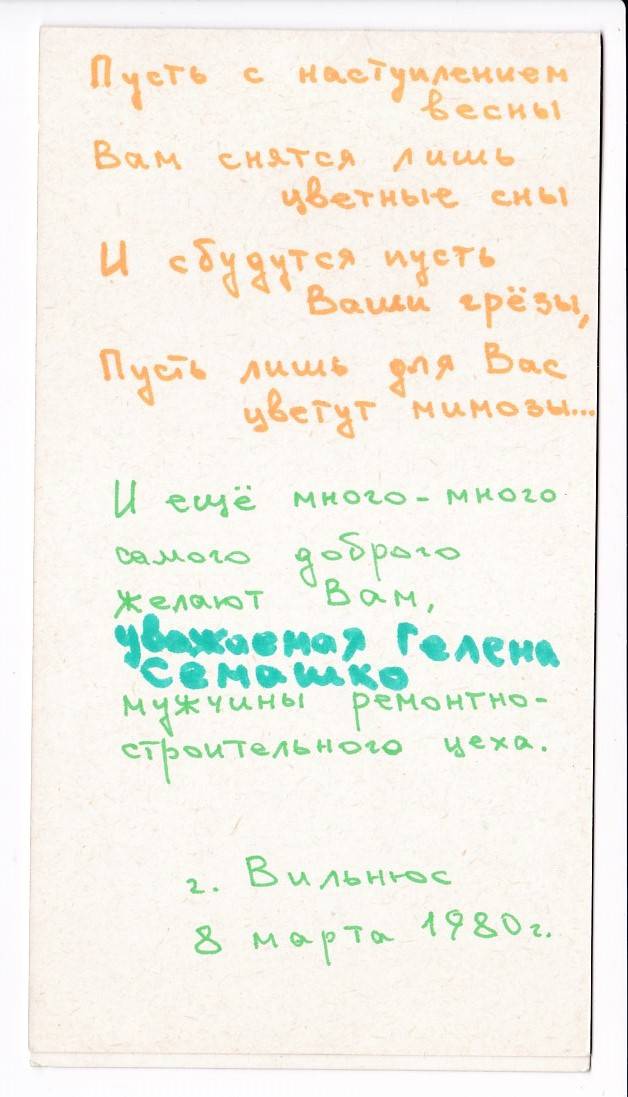 Пусть с наступлением
весны
Вам снятся лишь
цветные сны
И сбудутся пусть
Ваши грёзы,
Пусть лишь для Вас
цветут мимозы...
И ещё много-много
самого доброго
желают Вам,
уважаемая Гелена
Семашко
мужчины ремонтно-
строительного цеха.
г. Вильнюс
8 марта 1980г.